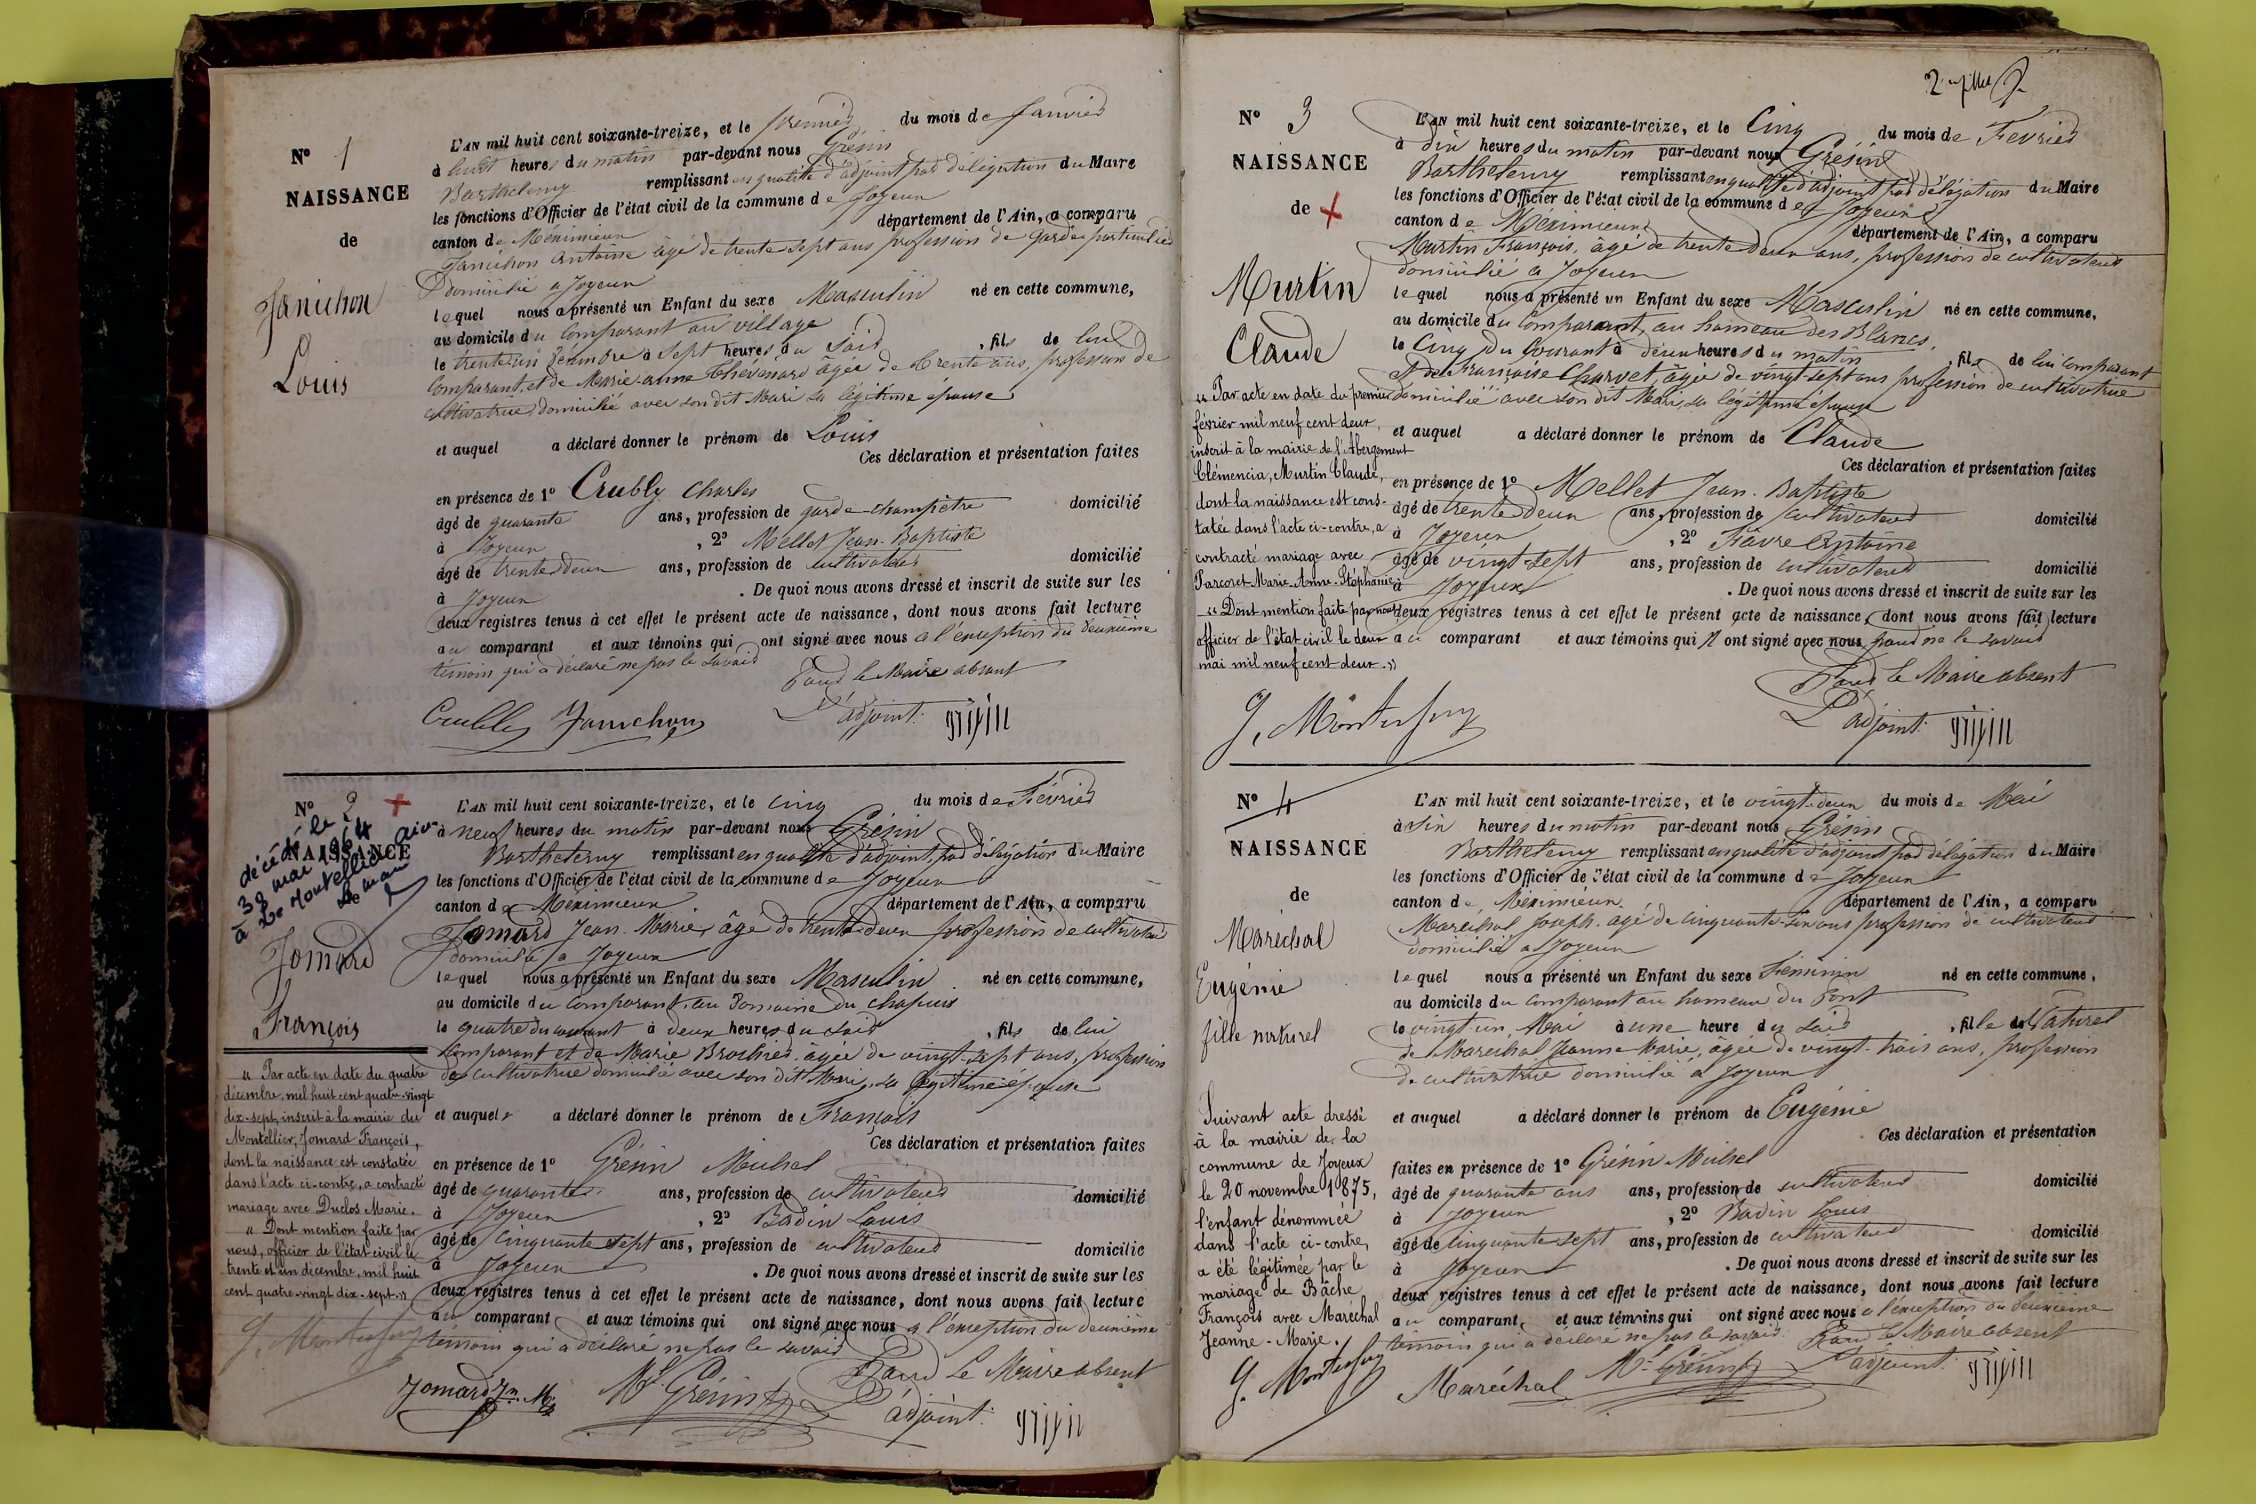 N° 1
NAISSANCE
de
Janichon
Louis
L'AN mil huit cent soixante-treize, et le premier du mois de Janvier
à huit heures du matin par-devant nous Grésin
Barthelemy remplissant en qualité d'adjoint par délégation du Maire
les fonctions d'Officier de l'état civil de la commune de Joyeux
canton de Méximieux département de l'Ain, a comparu
Janichon Antoine âgé de trente sept ans profession de garde particulier
domicilié à Joyeux
lequel nous a présenté un Enfant du sexe Masculin né en cette commune,
au domicile du Comparant au village
le trente un Décembre à sept heures du soir, fils de lui
Comparant, et de Marie-anne Thévenard âgée de trente ans, profession de
cultivatrice, domicilié avec son dit Mari sa légitime épouse
et auquel a déclaré donner le prénom de Louis
Ces déclaration et présentation faites
en présence de 1° Crubly Charles
âgé de quarante ans, profession de garde-champêtre domicilié
à Joyeux, 2° Mellet Jean-Baptiste
âgé de trente deux ans, profession de cultivateur domicilié
à Joyeux. De quoi nous avons dressé et inscrit de suite sur les
deux registres tenus à cet effet le présent acte de naissance, dont nous avons fait lecture
au comparant et aux témoins qui ont signé avec nous à l'exception du deuxième
témoin qui a déclaré ne pas le savoir
Pour le Maire absent
Crubly Janichon L'adjoint: grésin
N° 2
NAISSANCE
décédé le
38 mai 1964
à Le Montellier Ain
Le maire
Jomard
François
« Par acte en date du quatre
décembre, mil huit cent quatre-vingt
dix-sept, inscrit à la mairie du
Montellier, Jomard François,
dont la naissance est constatée
dans l'acte ci-contre, a contracté
mariage avec Duclos Marie.
« Dont mention faite par
nous, officier de l'état civil le
trente et un décembre, mil huit
cent quatre-vingt dix-sept.»
L'AN mil huit cent soixante-treize, et le cinq du mois de Février
à neuf heures du matin par-devant nous Grésin
Barthelemy remplissant en qualité d'adjoint, par délégation du Maire
les fonctions d'Officier de l'état civil de la commune de Joyeux
canton de Meximieux département de l'Ain, a comparu
Jomard Jean-Marie, âgé de trente-deux profession de cultivateur
domicilié à Joyeux
lequel nous a présenté un Enfant du sexe Masculin né en cette commune,
au domicile du comparant, au Domaine du chapuis
le quatre du courant à deux heures du soir, fils de lui
comparant et de Marie Brochier, âgée de vingt-sept ans, profession
de cultivatrice domicilié avec son dit Mari, sa légitime épouse
et auquel a déclaré donner le prénom de François
Ces déclaration et présentation faites
en présence de 1° Grésin Michel
âgé de quarante ans, profession de cultivateur domicilié
à Joyeux, 2° Badin Louis
âgé de cinquante sept ans, profession de cultivateur domicilié
à Joyeux. De quoi nous avons dressé et inscrit de suite sur les
deux registres tenus à cet effet le présent acte de naissance, dont nous avons fait lecture
au comparant, et aux témoins qui ont signé avec nous à l'exception du deuxième
témoin qui a déclaré ne pas le savoir
Pour Le Maire absent
Jomard Jn. M. Ml Grésin L'adjoint: grésin
N° 3
NAISSANCE
de
Murtin
Claude
« Par acte en date du premier
février mil neuf cent deux,
inscrit à la mairie de l'Abergement
Clémencia, Murtin Claude,
dont la naissance est cons-
tatée dans l'acte ci-contre, a
contracté mariage avec
Parcoret Marie-Anne-Stéphanie
« Dont mention faite par nous
officier de l'état civil le deux
mai mil neuf cent deux.»
L'AN mil huit cent soixante-treize, et le Cinq du mois de Fevrier
à dix heures du matin par-devant nous Grésin
Barthelemy remplissant en qualité d'adjoint par délégation du Maire
les fonctions d'Officier de l'état civil de la commune de Joyeux
canton de Meximieux département de l'Ain, a comparu
Murtin François, âgé de trente deux ans, profession de cultivateur
domicilié à Joyeux
lequel nous a présenté un Enfant du sexe Masculin né en cette commune,
au domicile du Comparant, au hameau des Blancs.
le Cinq du Courant à deux heures du matin, fils de lui comparant
et de Françoise Charvet, âgée de vingt-sept ans profession de cultivatrice
domicilié avec son dit Mari, sa légitime épouse
et auquel a déclaré donner le prénom de Claude
Ces déclaration et présentation faites
en présence de 1° Mellet Jean-Baptiste
âgé de trente deux ans, profession de cultivateur domicilié
à Joyeux, 2° Favre Antoine
âgé de vingt-sept ans, profession de cultivateur domicilié
à Joyeux. De quoi nous avons dressé et inscrit de suite sur les
deux registres tenus à cet effet le présent acte de naissance, dont nous avons fait lecture
au comparant et aux témoins qui n'ont signé avec nous pour ne le savoir
Pour le Maire absent
L'adjoint: grésin
N° 4
NAISSANCE
de
Maréchal
Eugénie
fille naturel
Suivant acte dressé
à la mairie de la
commune de Joyeux
le 20 novembre 1875,
l'enfant dénommée
dans l'acte ci-contre,
a été légitimée par le
mariage de Bâche
François avec Maréchal
Jeanne-Marie.
L'AN mil huit cent soixante-treize, et le vingt-deux du mois de Mai
à six heures du matin par-devant nous Grésin
Barthelemy remplissant en qualité d'adjoint par délégation du Maire
les fonctions d'Officier de l'état civil de la commune de Joyeux
canton de Méximieux département de l'Ain, a comparu
Maréchal Joseph, âgé de cinquante-six ans profession de cultivateur
domicilié à Joyeux
lequel nous a présenté un Enfant du sexe Féminin né en cette commune,
au domicile du comparant au hameau du Pont
le vingt un Mai à une heure du soir, fille Naturel
de Maréchal Jeanne Marie, âgée de vingt-trois ans, profession
de cultivatrice domicilié à Joyeux
et auquel a déclaré donner le prénom de Eugénie
Ces déclaration et présentation
faites en présence de 1° Grésin Michel
âgé de quarante ans ans, profession de cultivateur domicilié
à Joyeux, 2° Badin Louis
âgé de cinquante sept ans, profession de cultivateur domicilié
à Joyeux. De quoi nous avons dressé et inscrit de suite sur les
deux registres tenus à cet effet le présent acte de naissance, dont nous avons fait lecture
au comparant, et aux témoins qui ont signé avec nous à l'exception du deuxième
témoin qui a déclaré ne pas le savoir Pour le Maire absent
Maréchal Ml Grésin L'adjoint: grésin